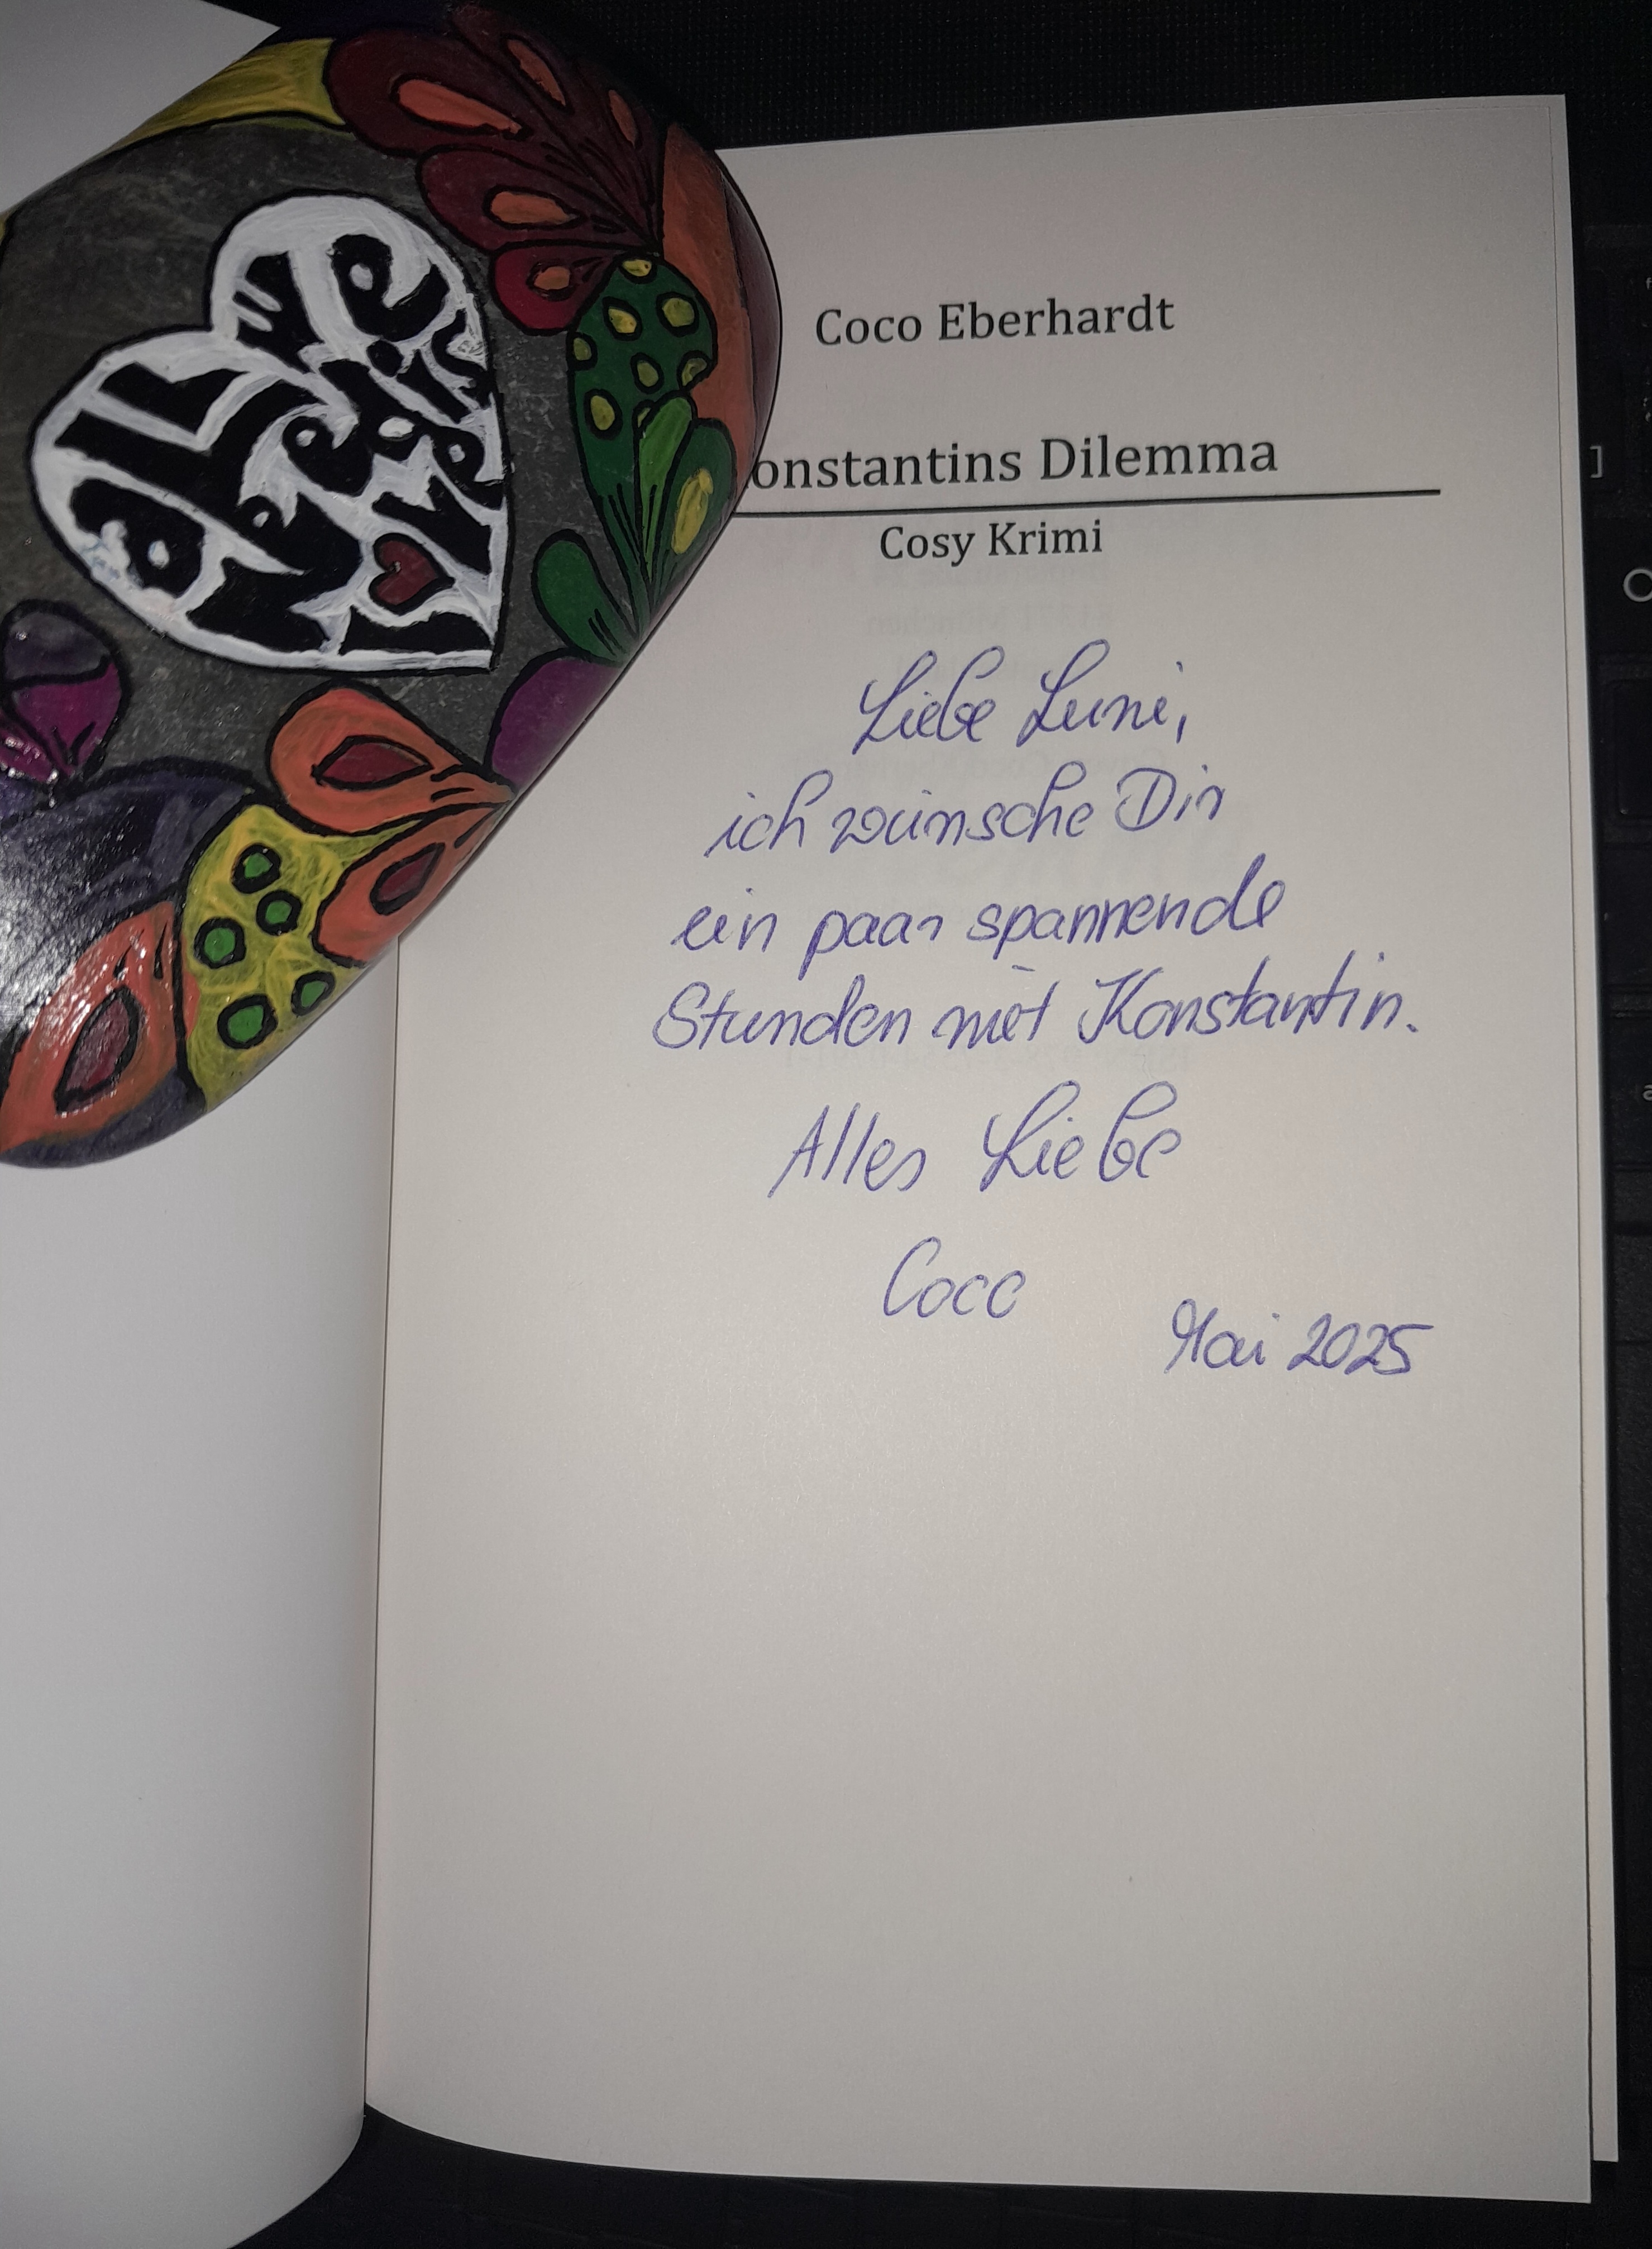 All we
need is
love
Coco Eberhardt
onstantins Dilemma
Cosy Krimi
Liebe Luni,
ich wünsche Dir
ein paar spannende
Stunden mit Konstantin.
Alles Liebe
Coco
Mai 2025